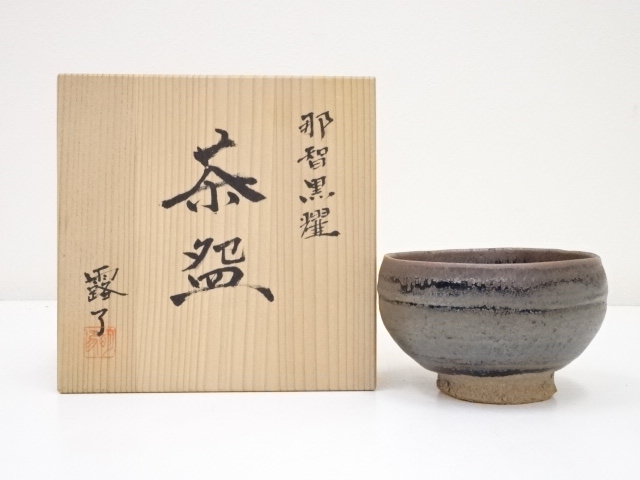 那智黒耀
茶盌
露了